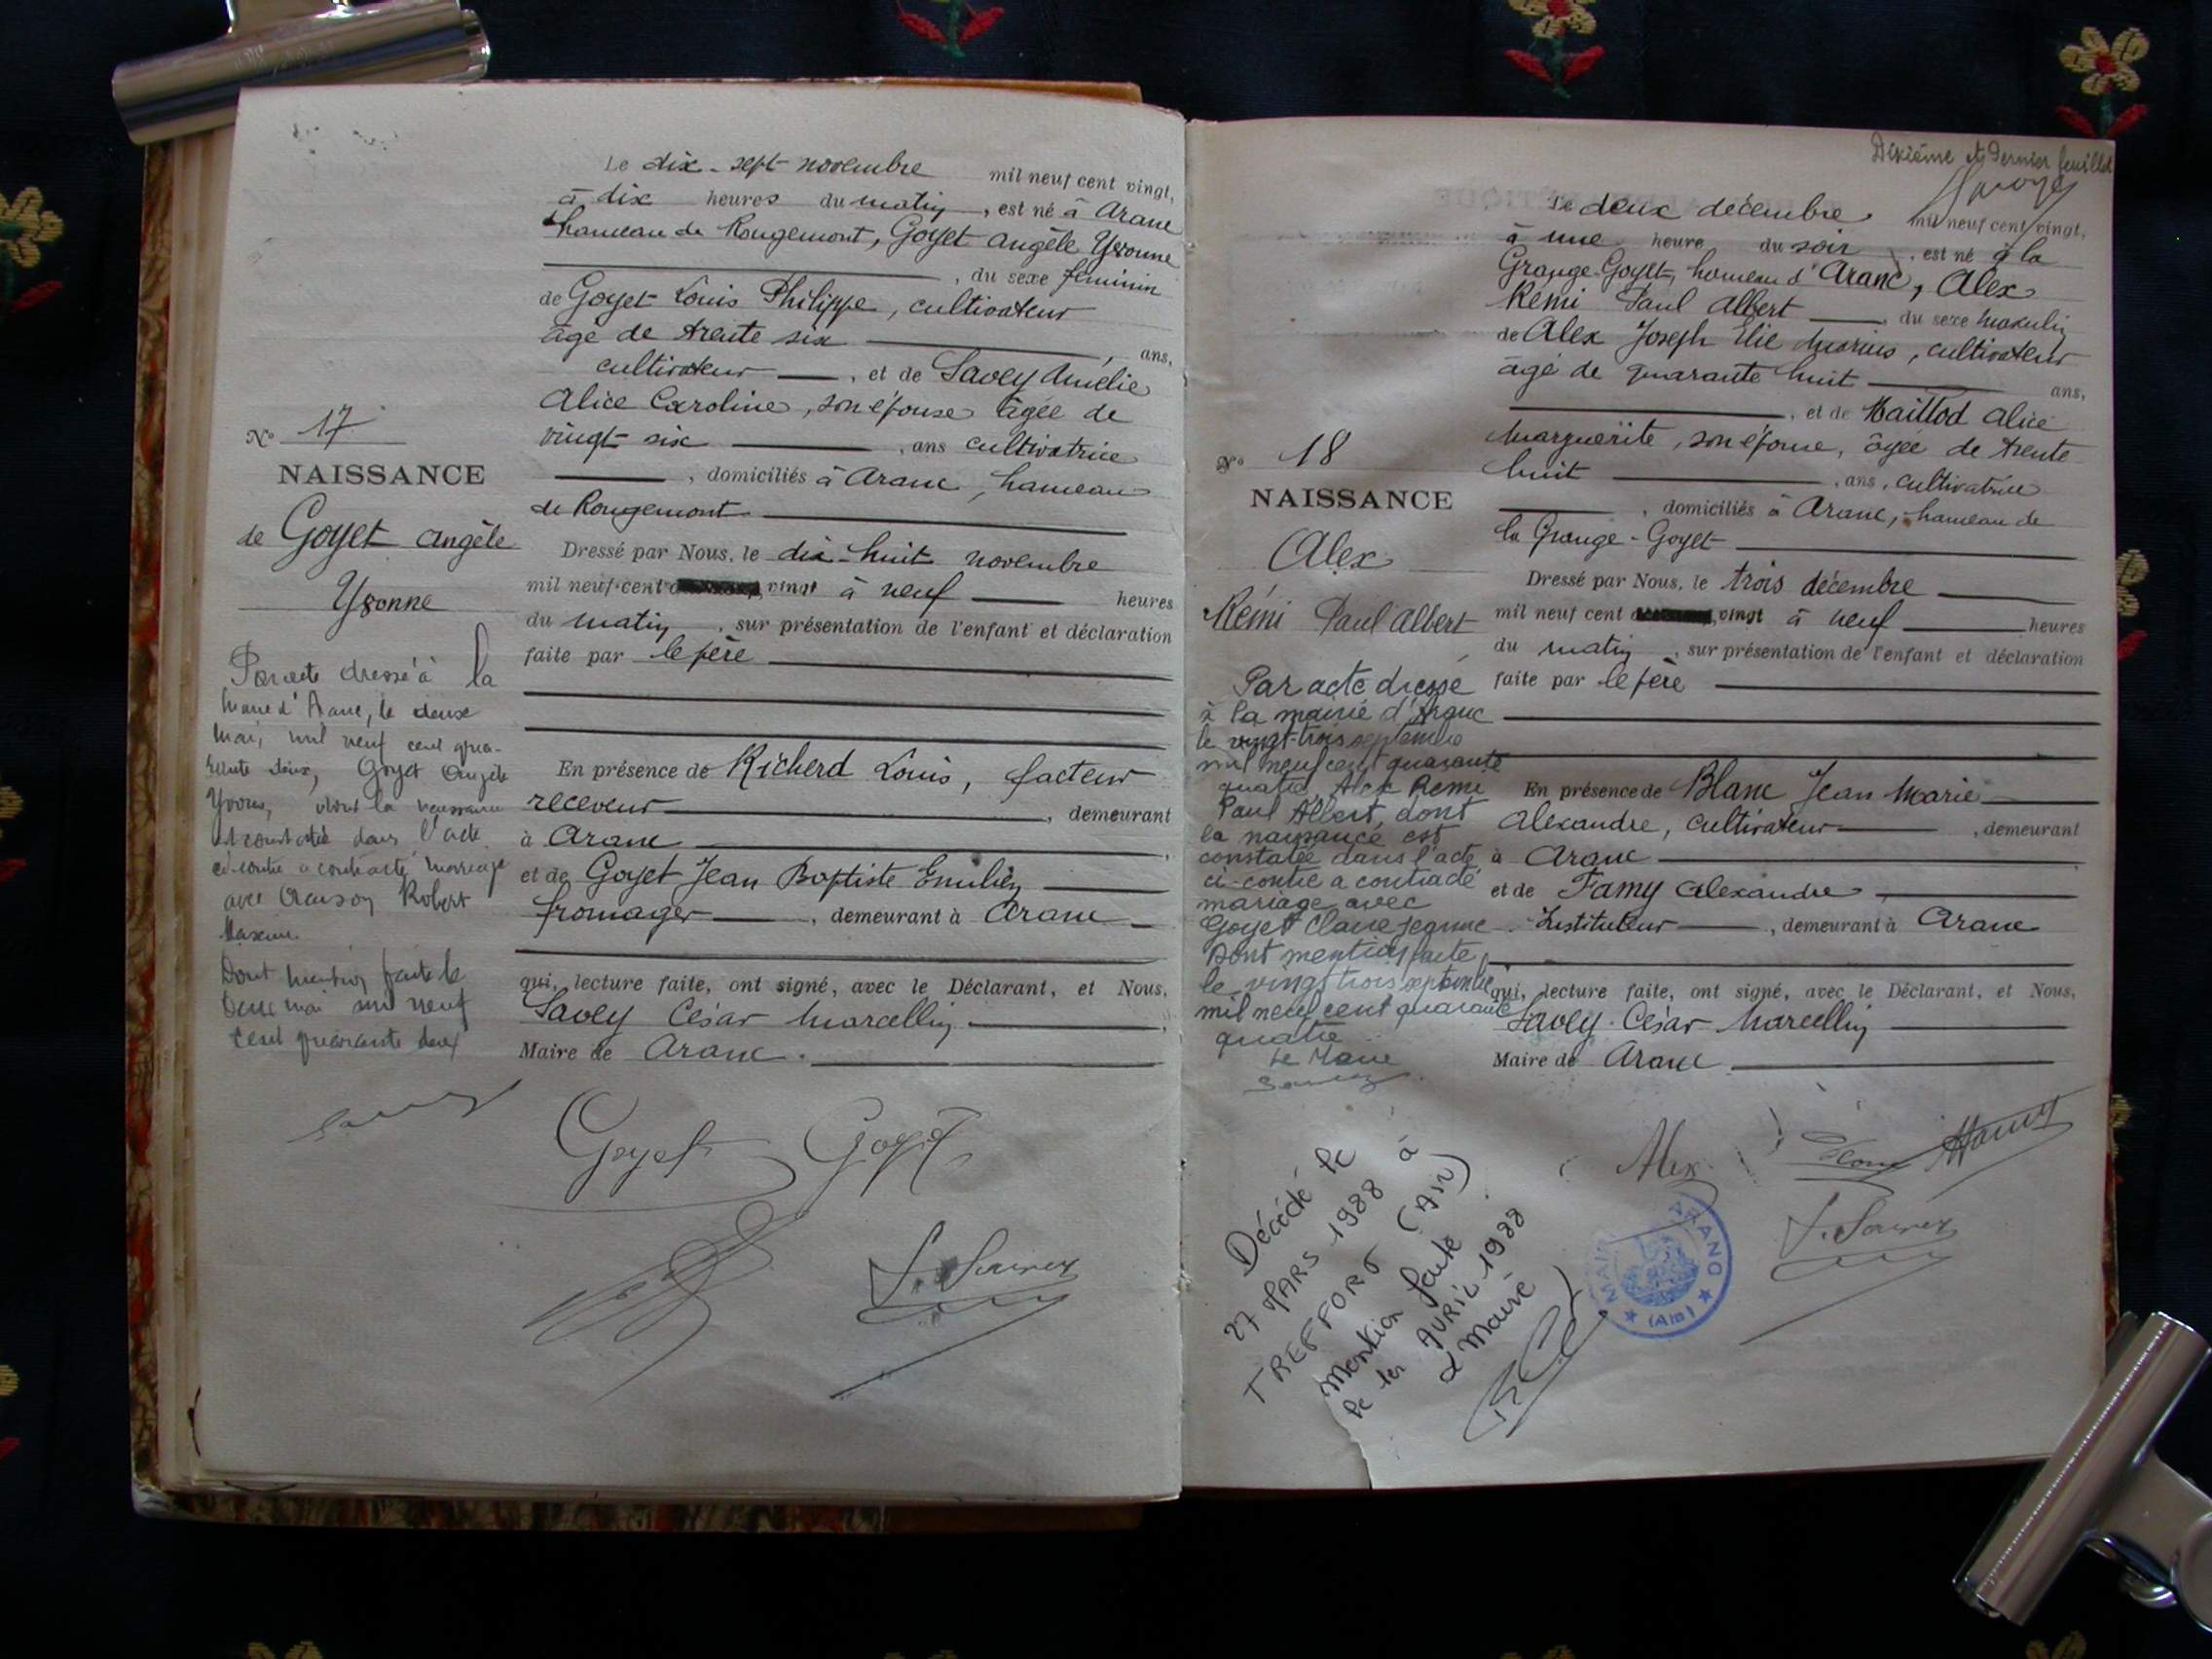 Le dix-sept novembre mil neuf cent vingt,
à dix heures du matin, est né à Aranc
hameau de Rougemont, Goyet Angèle Yvonne
, du sexe féminin
de Goyet Louis Philippe, cultivateur
âgé de trente six , ans,
cultivateur , et de Savey Amélie
Alice Caroline, son épouse âgée de
vingt-six , ans cultivatrice
, domiciliés à Aranc, hameau
de Rougemont
N° 17
NAISSANCE
de Goyet Angèle
Yvonne
Dressé par Nous, le dix-huit novembre
mil neuf cent vingt à neuf heures
du matin, sur présentation de l'enfant et déclaration
faite par le père
En présence de Richerd Louis, facteur
receveur , demeurant
à Aranc
et de Goyet Jean Baptiste Emilien
fromager , demeurant à Aranc
qui, lecture faite, ont signé, avec le Déclarant, et Nous,
Savey César Marcellin
Maire de Aranc.
Par acte dressé à la
Mairie d'Aranc, le deux
Mai, mil neuf cent qua-
rante deux, Goyet Angèle
Yvonne, dont la naissance
est constatée dans l'acte
ci-contre a contracté mariage
avec Robert
Maxime.
Dont mention faite le
Deux mai mil neuf
cent quarante deux
Goyet Goyet
Dixième et Dernier feuillet
Le deux décembre mil neuf cent vingt,
à une heure du soir, est né à la
Grange-Goyet, hameau d'Aranc, Alex
Rémi Paul Albert , du sexe masculin
de Alex Joseph Elie Marius, cultivateur
âgé de quarante huit ans,
, et de Maillod Alice
Marguerite, son épouse, âgée de trente
huit , ans, cultivatrice
, domiciliés à Aranc, hameau de
la Grange-Goyet
N° 18
NAISSANCE
Alex
Rémi Paul Albert
Dressé par Nous, le trois décembre
mil neuf cent vingt à neuf heures
du matin, sur présentation de l'enfant et déclaration
faite par le père
En présence de Blanc Jean Marie
Alexandre, cultivateur , demeurant
à Aranc
et de Famy Alexandre
Instituteur , demeurant à Aranc
qui, lecture faite, ont signé, avec le Déclarant, et Nous,
Savey César Marcellin
Maire de Aranc
Par acte dressé
à la mairie d'Aranc
le vingt-trois septembre
mil neuf cent quarante
quatre, Alex Rémi
Paul Albert, dont
la naissance est
constatée dans l'acte
ci-contre a contracté
mariage avec
Goyet Claire Jeanne
Dont mention faite
le vingt trois septembre
mil neuf cent quarante
quatre
Le Maire
Alex
Décédé le
27 MARS 1988 à
TREFFORT (AIN)
Mention faite
le 1er AVRIL 1988
(Ain)